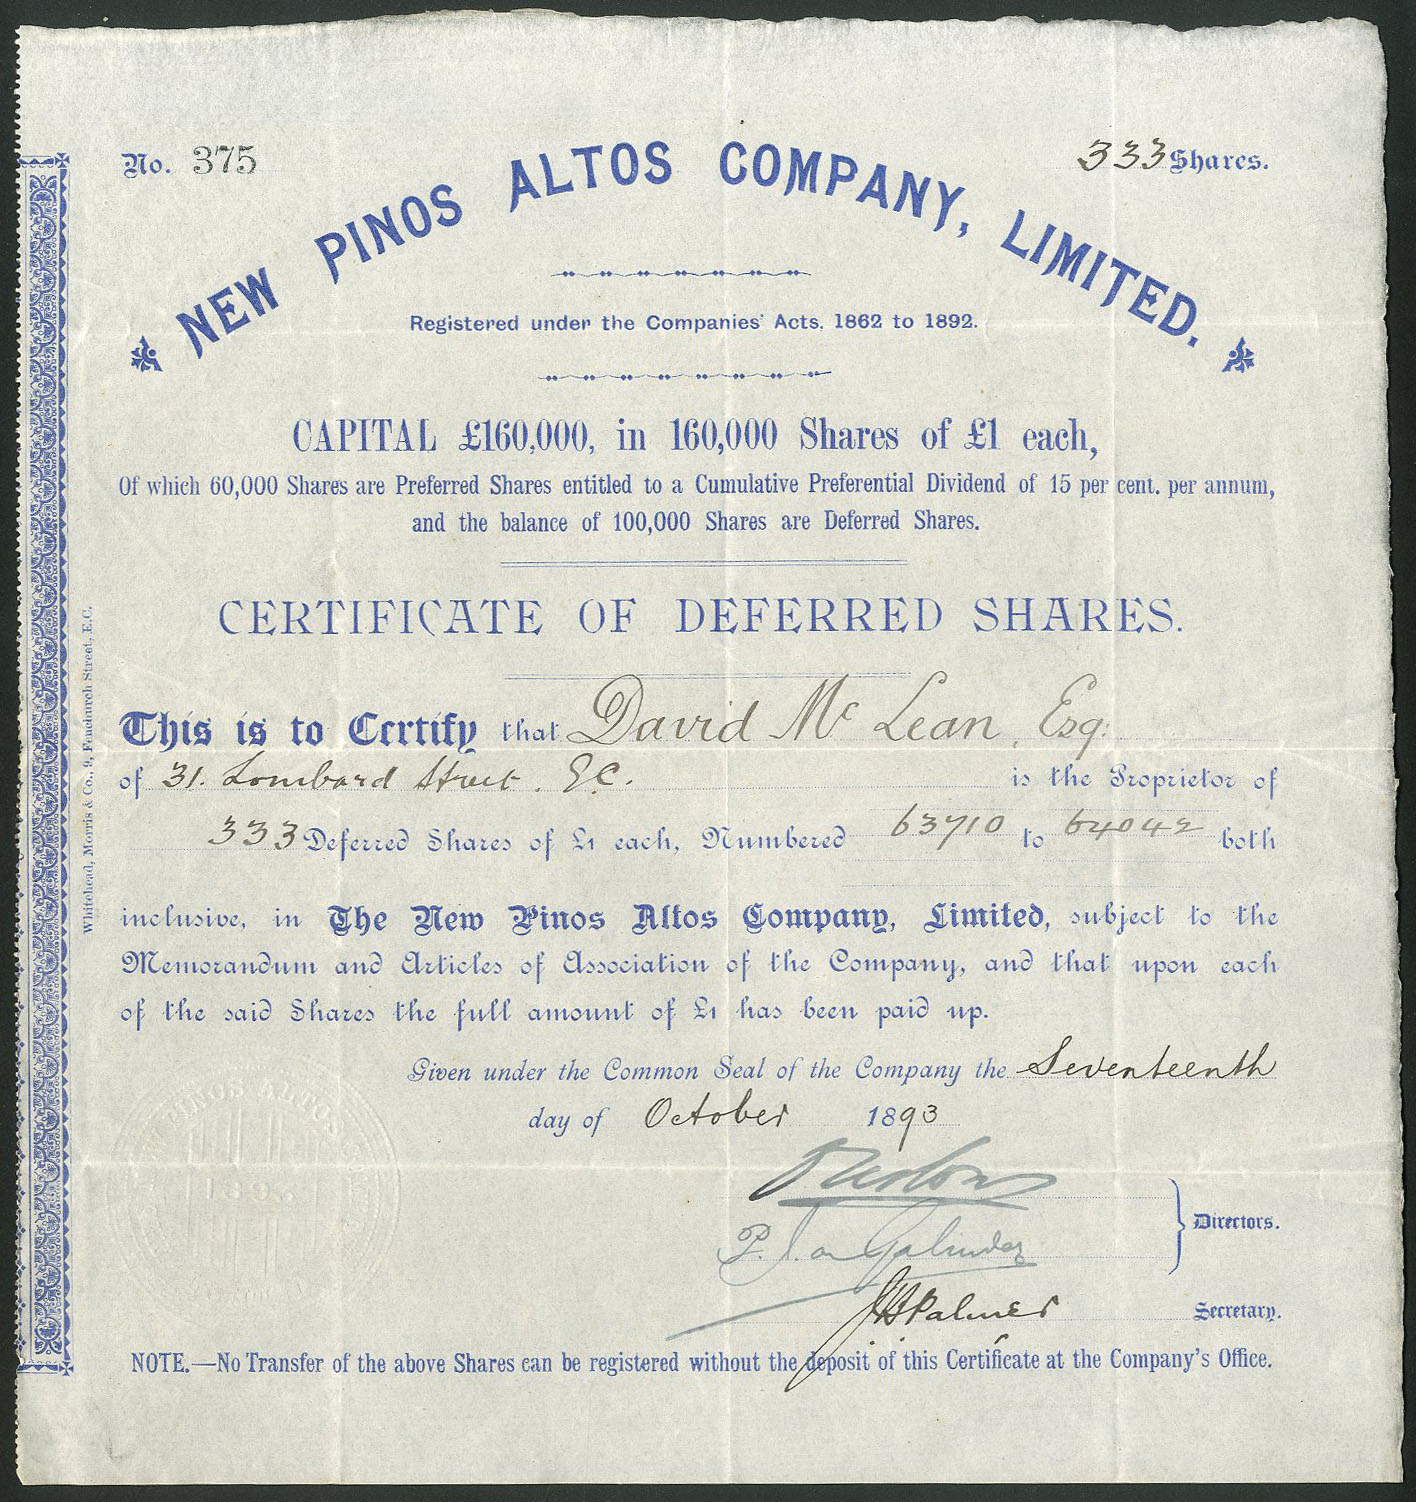 No. 375
333 Shares.
NEW PINOS ALTOS COMPANY, LIMITED.
Registered under the Companies' Acts, 1862 to 1892.
CAPITAL £160,000, in 160,000 Shares of £1 each,
Of which 60,000 Shares are Preferred Shares entitled to a Cumulative Preferential Dividend of 15 per cent. per annum,
and the balance of 100,000 Shares are Deferred Shares.
CERTIFICATE OF DEFERRED SHARES.
This is to Certify that David Mc Lean, Esq:
of 31. Lombard Street. E.C. is the Proprietor of
333 Deferred Shares of £1 each, Numbered 63710 to 64042 both
inclusive, in The New Pinos Altos Company, Limited, subject to the
Memorandum and Articles of Association of the Company, and that upon each
of the said Shares the full amount of £1 has been paid up.
Given under the Common Seal of the Company the Seventeenth
day of October 1893
Directors.
Palmer
Secretary.
NOTE.—No Transfer of the above Shares can be registered without the deposit of this Certificate at the Company's Office.
Whitehead, Morris & Co., 9, Fenchurch Street, E.C.